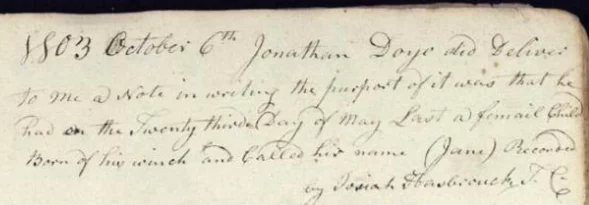 1803 October 6th Jonathan Doyo did Deliver
to me a Note in writing the purport of it was that he
had on the Twenty third Day of May Last a femail Child
Born of his winch and Called his name (Jane) Recorded
by Josiah Hasbrouck T. C